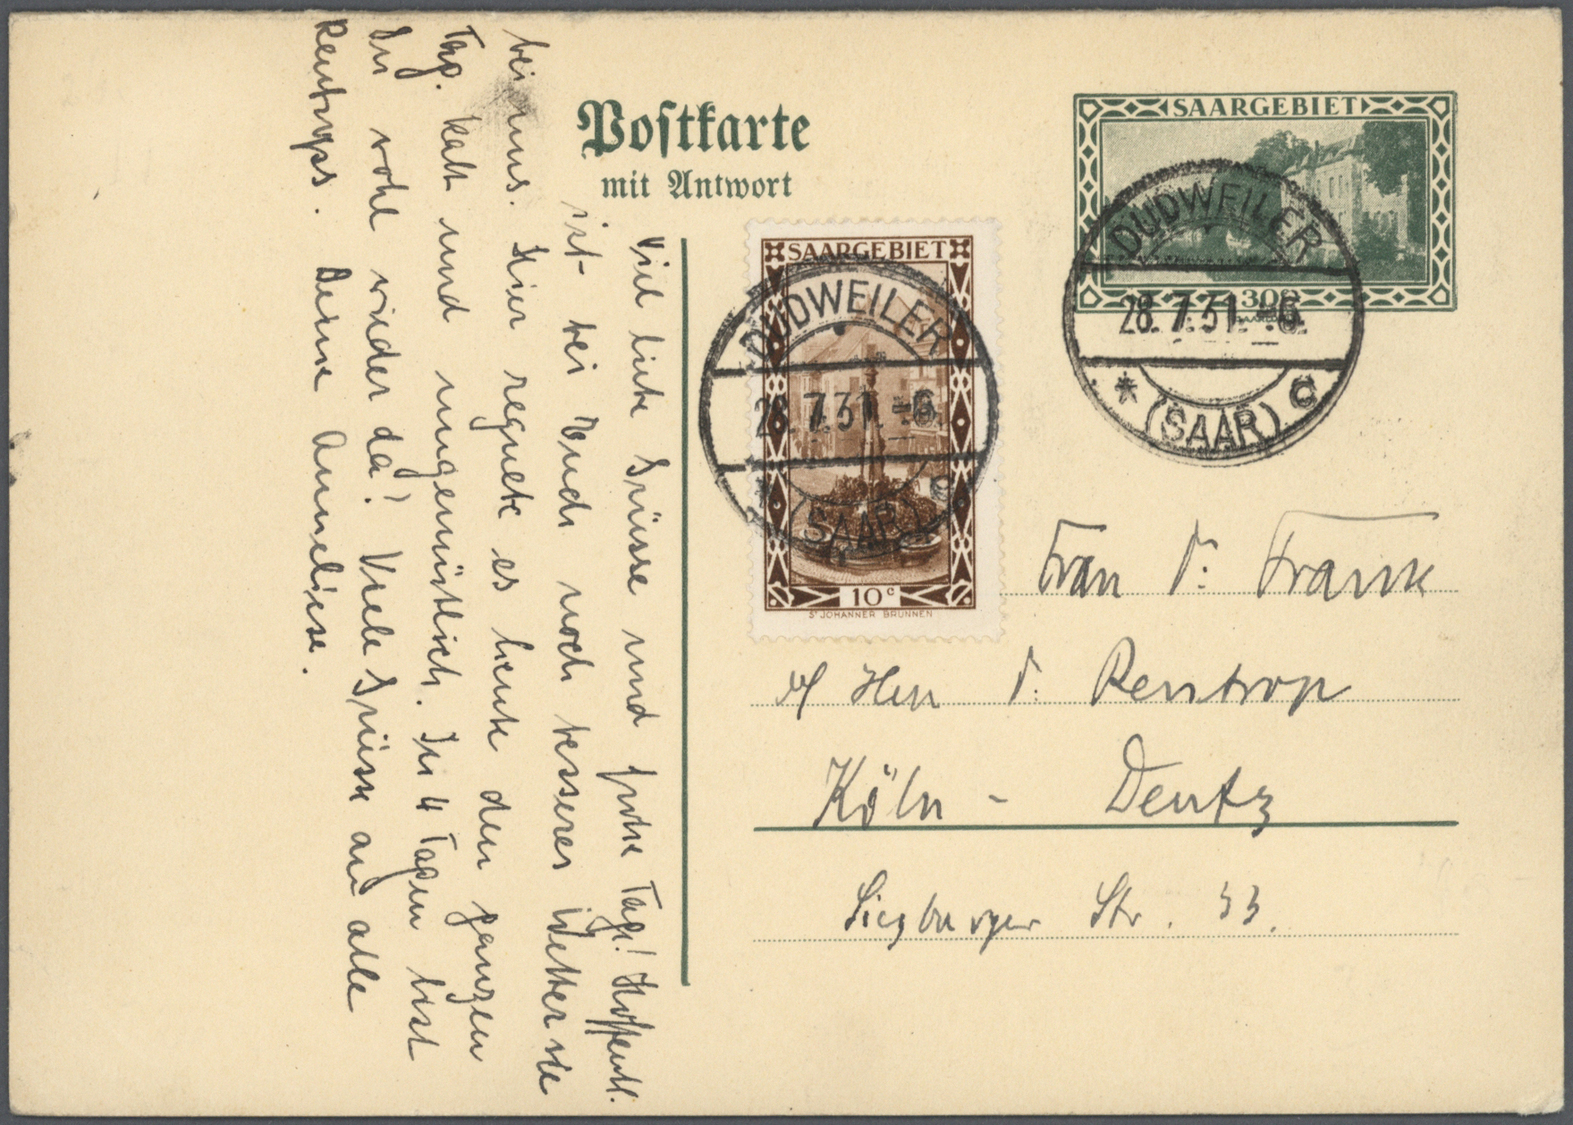 Postkarte
mit Antwort
SAARGEBIET
30c
DUDWEILER
28.7.31.-6
(SAAR)
C
SAARGEBIET
10c
ST JOHANNER BRUNNEN
DUDWEILER
28.7.31.-6
(SAAR)
C
Frau Dr. Franke
Herrn Dr. Rentrop
Köln - Deutz
Siegburger Str. 33.
Viel liebe Grüsse und frohe Tag! Hoffentl.
ist bei Euch noch besseres Wetter wie
bei uns. Hier regnete es heute den ganzen
Tag. Kalt und ungemütlich. In 4 Tagen bist
Du wohl wieder da! Viele Grüsse an alle
Rentrops. Deine Anneliese.